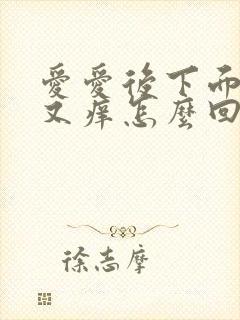 愛愛後下而
又痒怎麼回
徐志摩